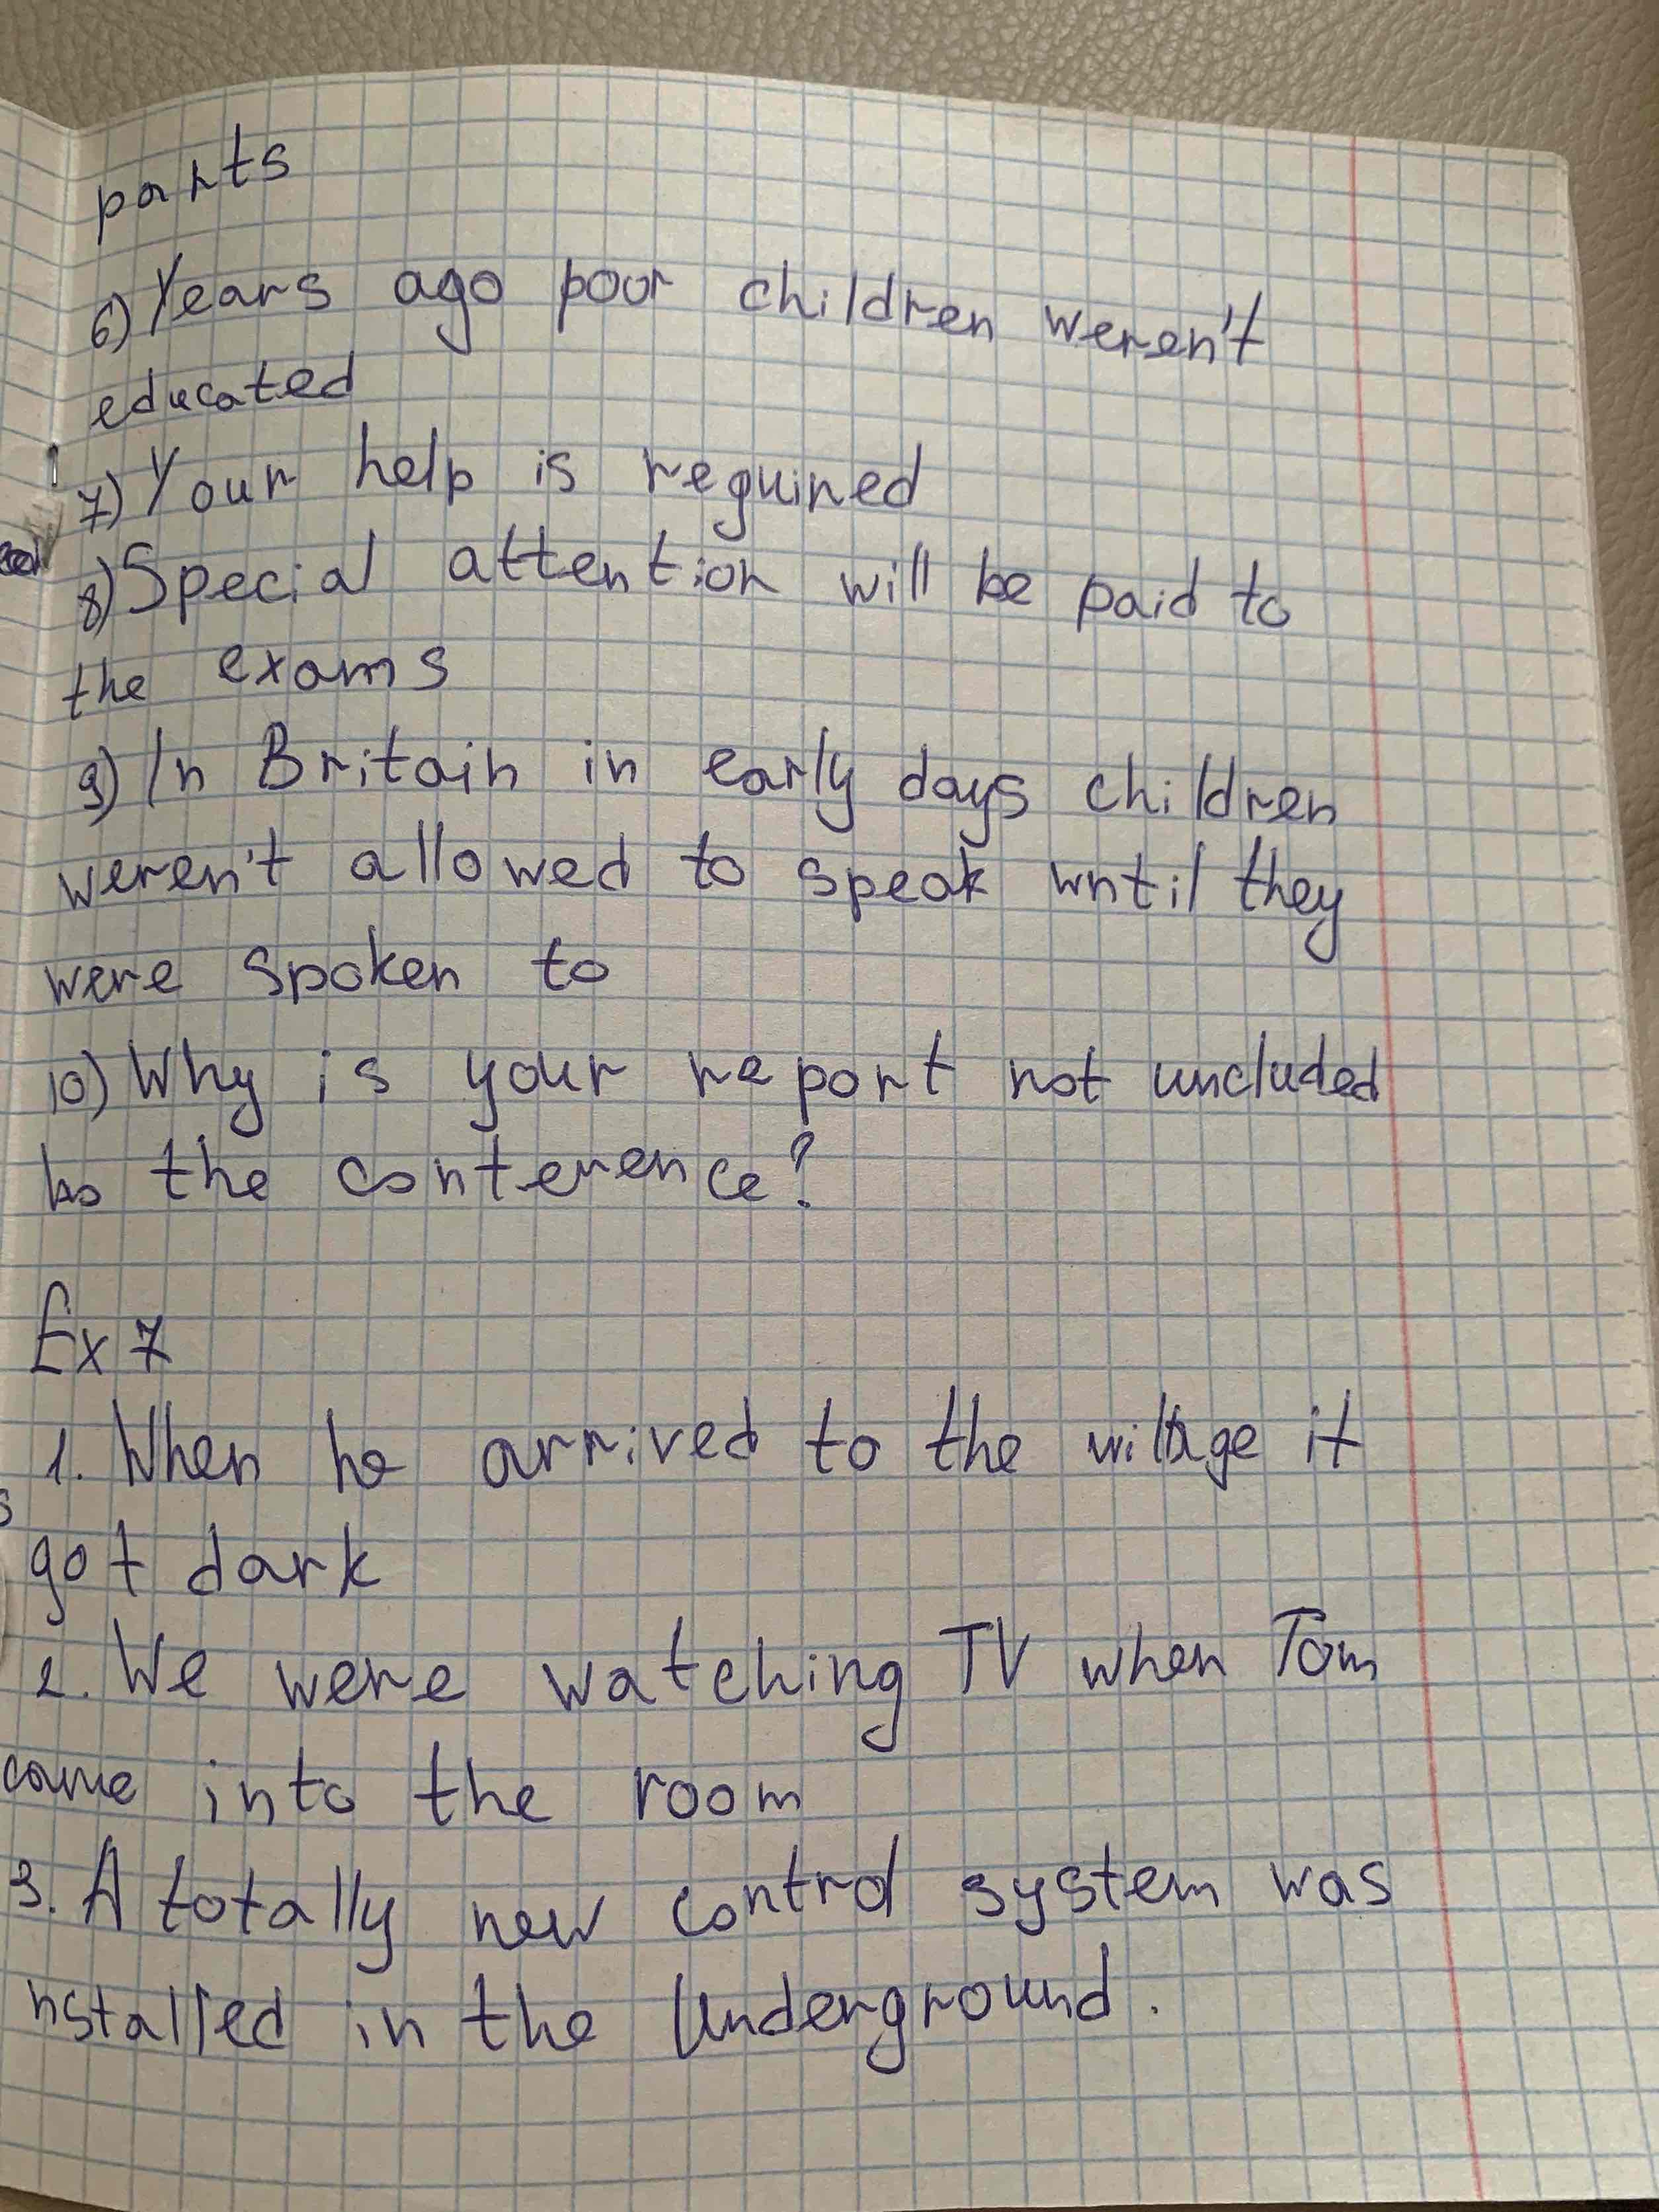 parts
6) Years ago poor children weren't
educated
7) Your help is required
8) Special attention will be paid to
the exams
9) In Britain in early days children
weren't allowed to speak until they
were spoken to
10) Why is your report not uncluded
to the conterence?
Ex 7
1. When he arrived to the village it
got dark
2. We were watching TV when Tom
came into the room
3. A totally new control system was
nstalled in the Underground.